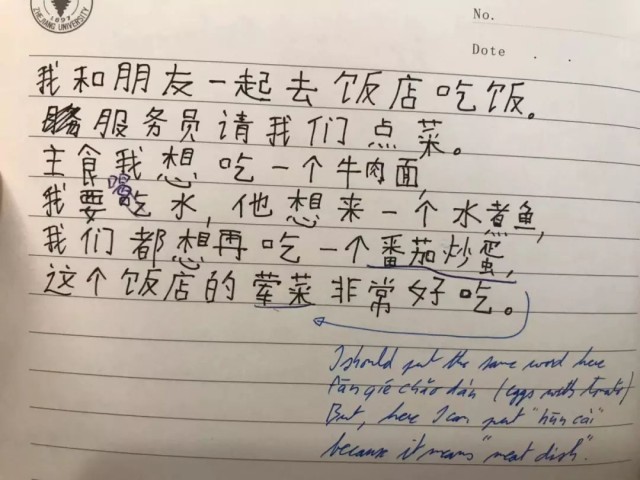 ZHEJIANG UNIVERSITY
1897
No.
Dote . .
我和朋友一起去饭店吃饭。
服务员请我们点菜。
主食我想吃一个牛肉面,
喝
我要吃水,他想来一个水煮鱼,
我们都想再吃一个番茄炒蛋,
这个饭店的荤菜非常好吃。
I should put the same word here
Fān qié chǎo dàn (eggs with tomato)
But, here I can put "hūn cài"
because it means "meat dish".